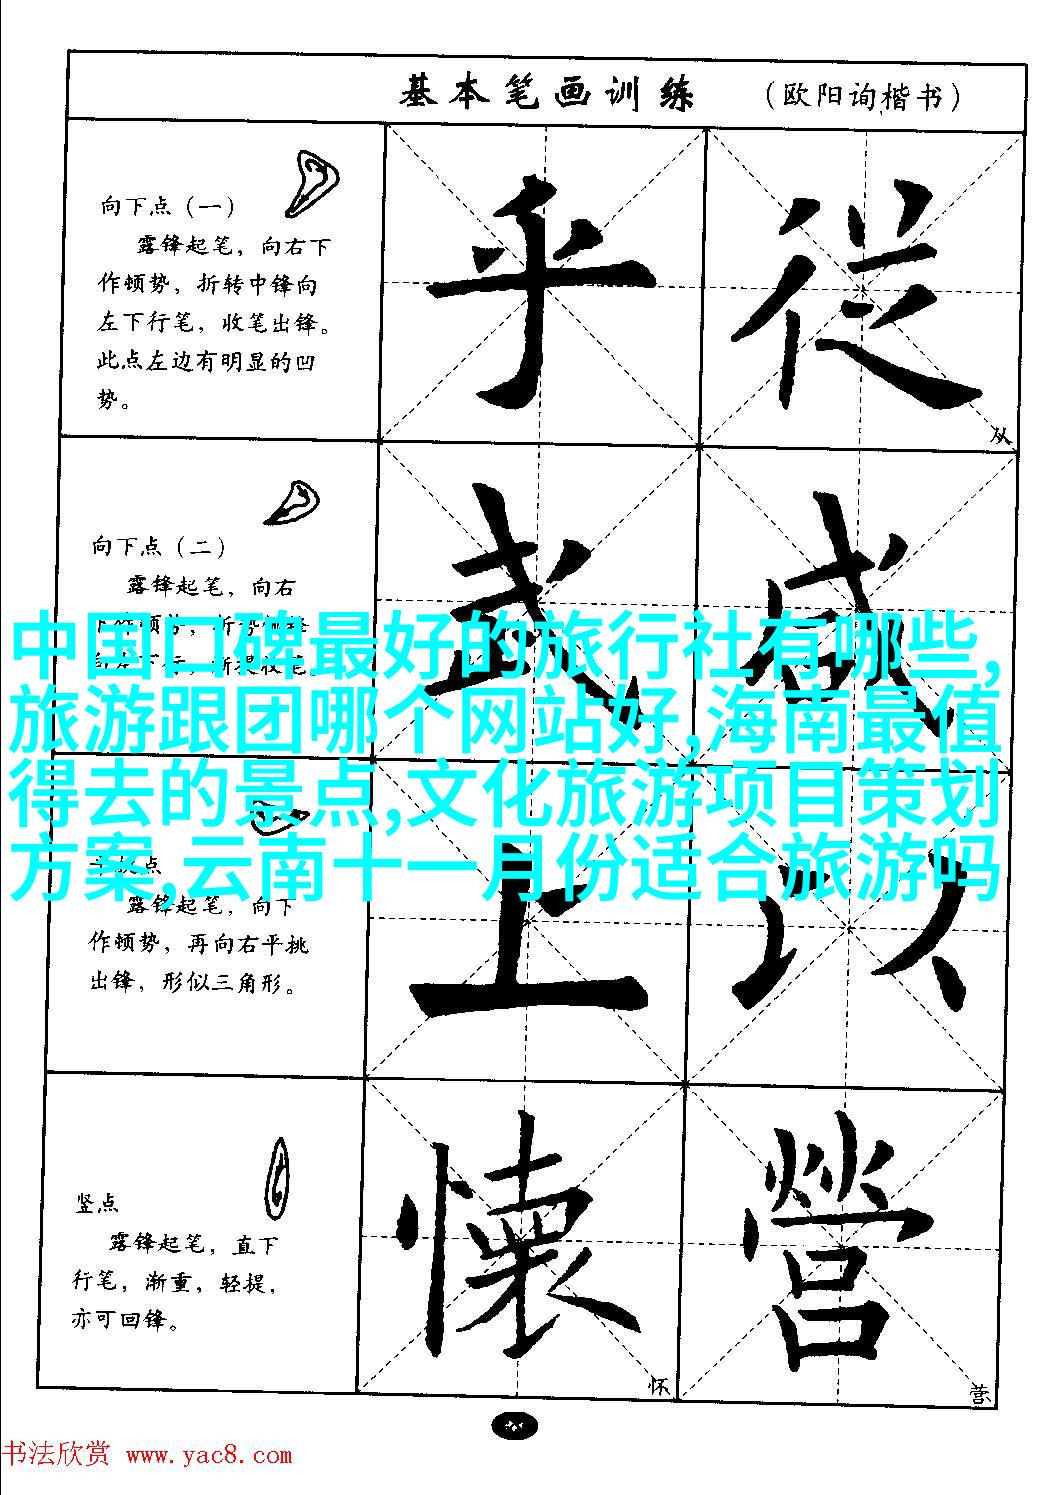 基本笔画训练 （欧阳询楷书）
向下点（一）
露锋起笔，向右下
作顿势，折转中锋向
左下行笔，收笔出锋。
此点左边有明显的凹
势。
乎 從
从
向下点（二）
露锋起笔，向右
武 感
中国口碑最好的旅行社有哪些,
旅游跟团哪个网站好,海南最值
得去的景点,文化旅游项目策划
方案,云南十一月份适合旅游吗
露锋起笔，向下
作顿势，再向右平挑
出锋，形似三角形。
上 以
竖点
露锋起笔，直下
行笔，渐重，轻提，
亦可回锋。
懷 營
怀 营
书法欣赏 www.yac8.com